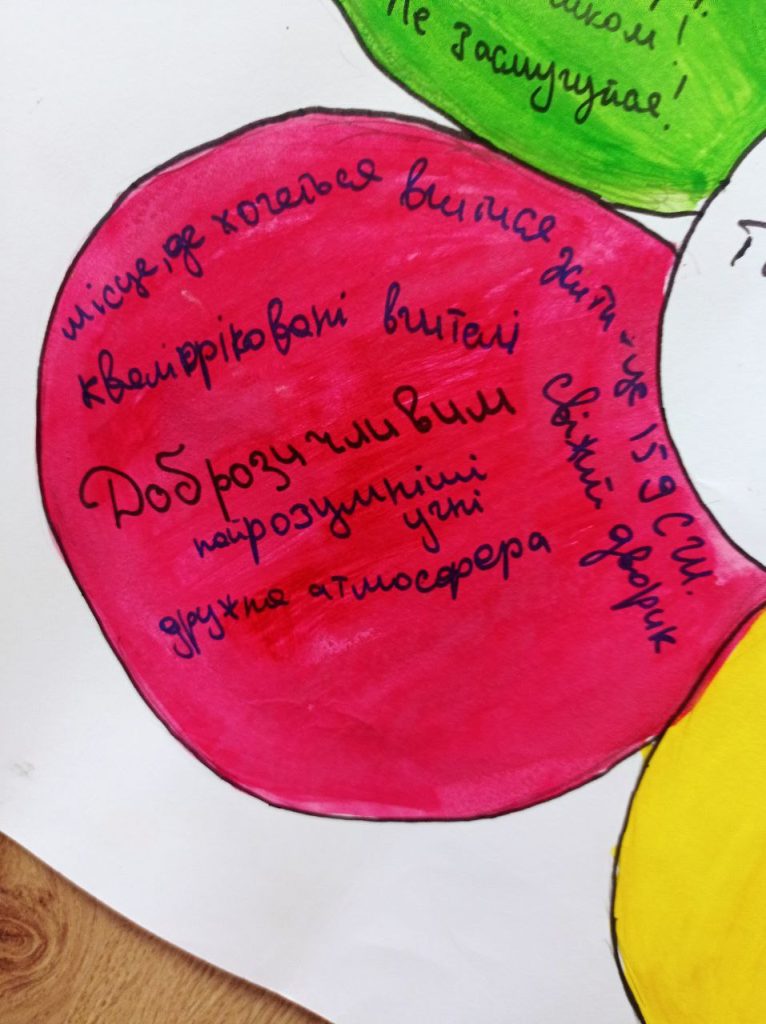 Не засмучуйся!
місце, де хочеться вчитися жити - це 159 СШ.
кваліфіковані вчителі
свіжий дворик
Доброзичливим
найрозумніші
учні
дружна атмосфера